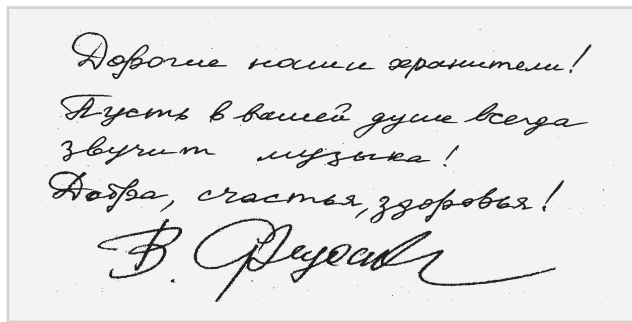 Дорогие наши хранители!
Пусть в вашей душе всегда
звучит музыка!
Добра, счастья, здоровья!
В.